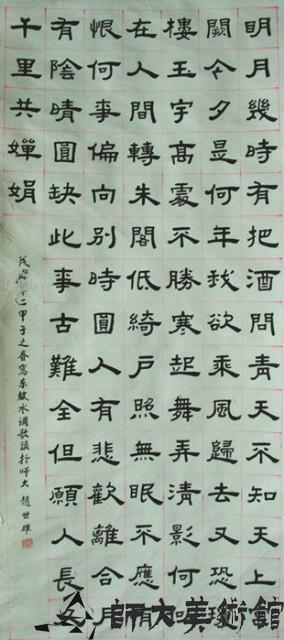 明月幾時有把酒問青天不知天上
闕今夕昰何年我欲乘風歸去又恐瓊
樓玉宇高處不勝寒起舞弄清影何
在人間轉朱閣低綺戶照無眠不應有
恨何事偏向別時圓人有悲歡離合月
有陰晴圓缺此事古難全但願人長
千里共嬋娟
二甲子之春寫东坡水调歌頭於師大 趙世雄
師大美術館